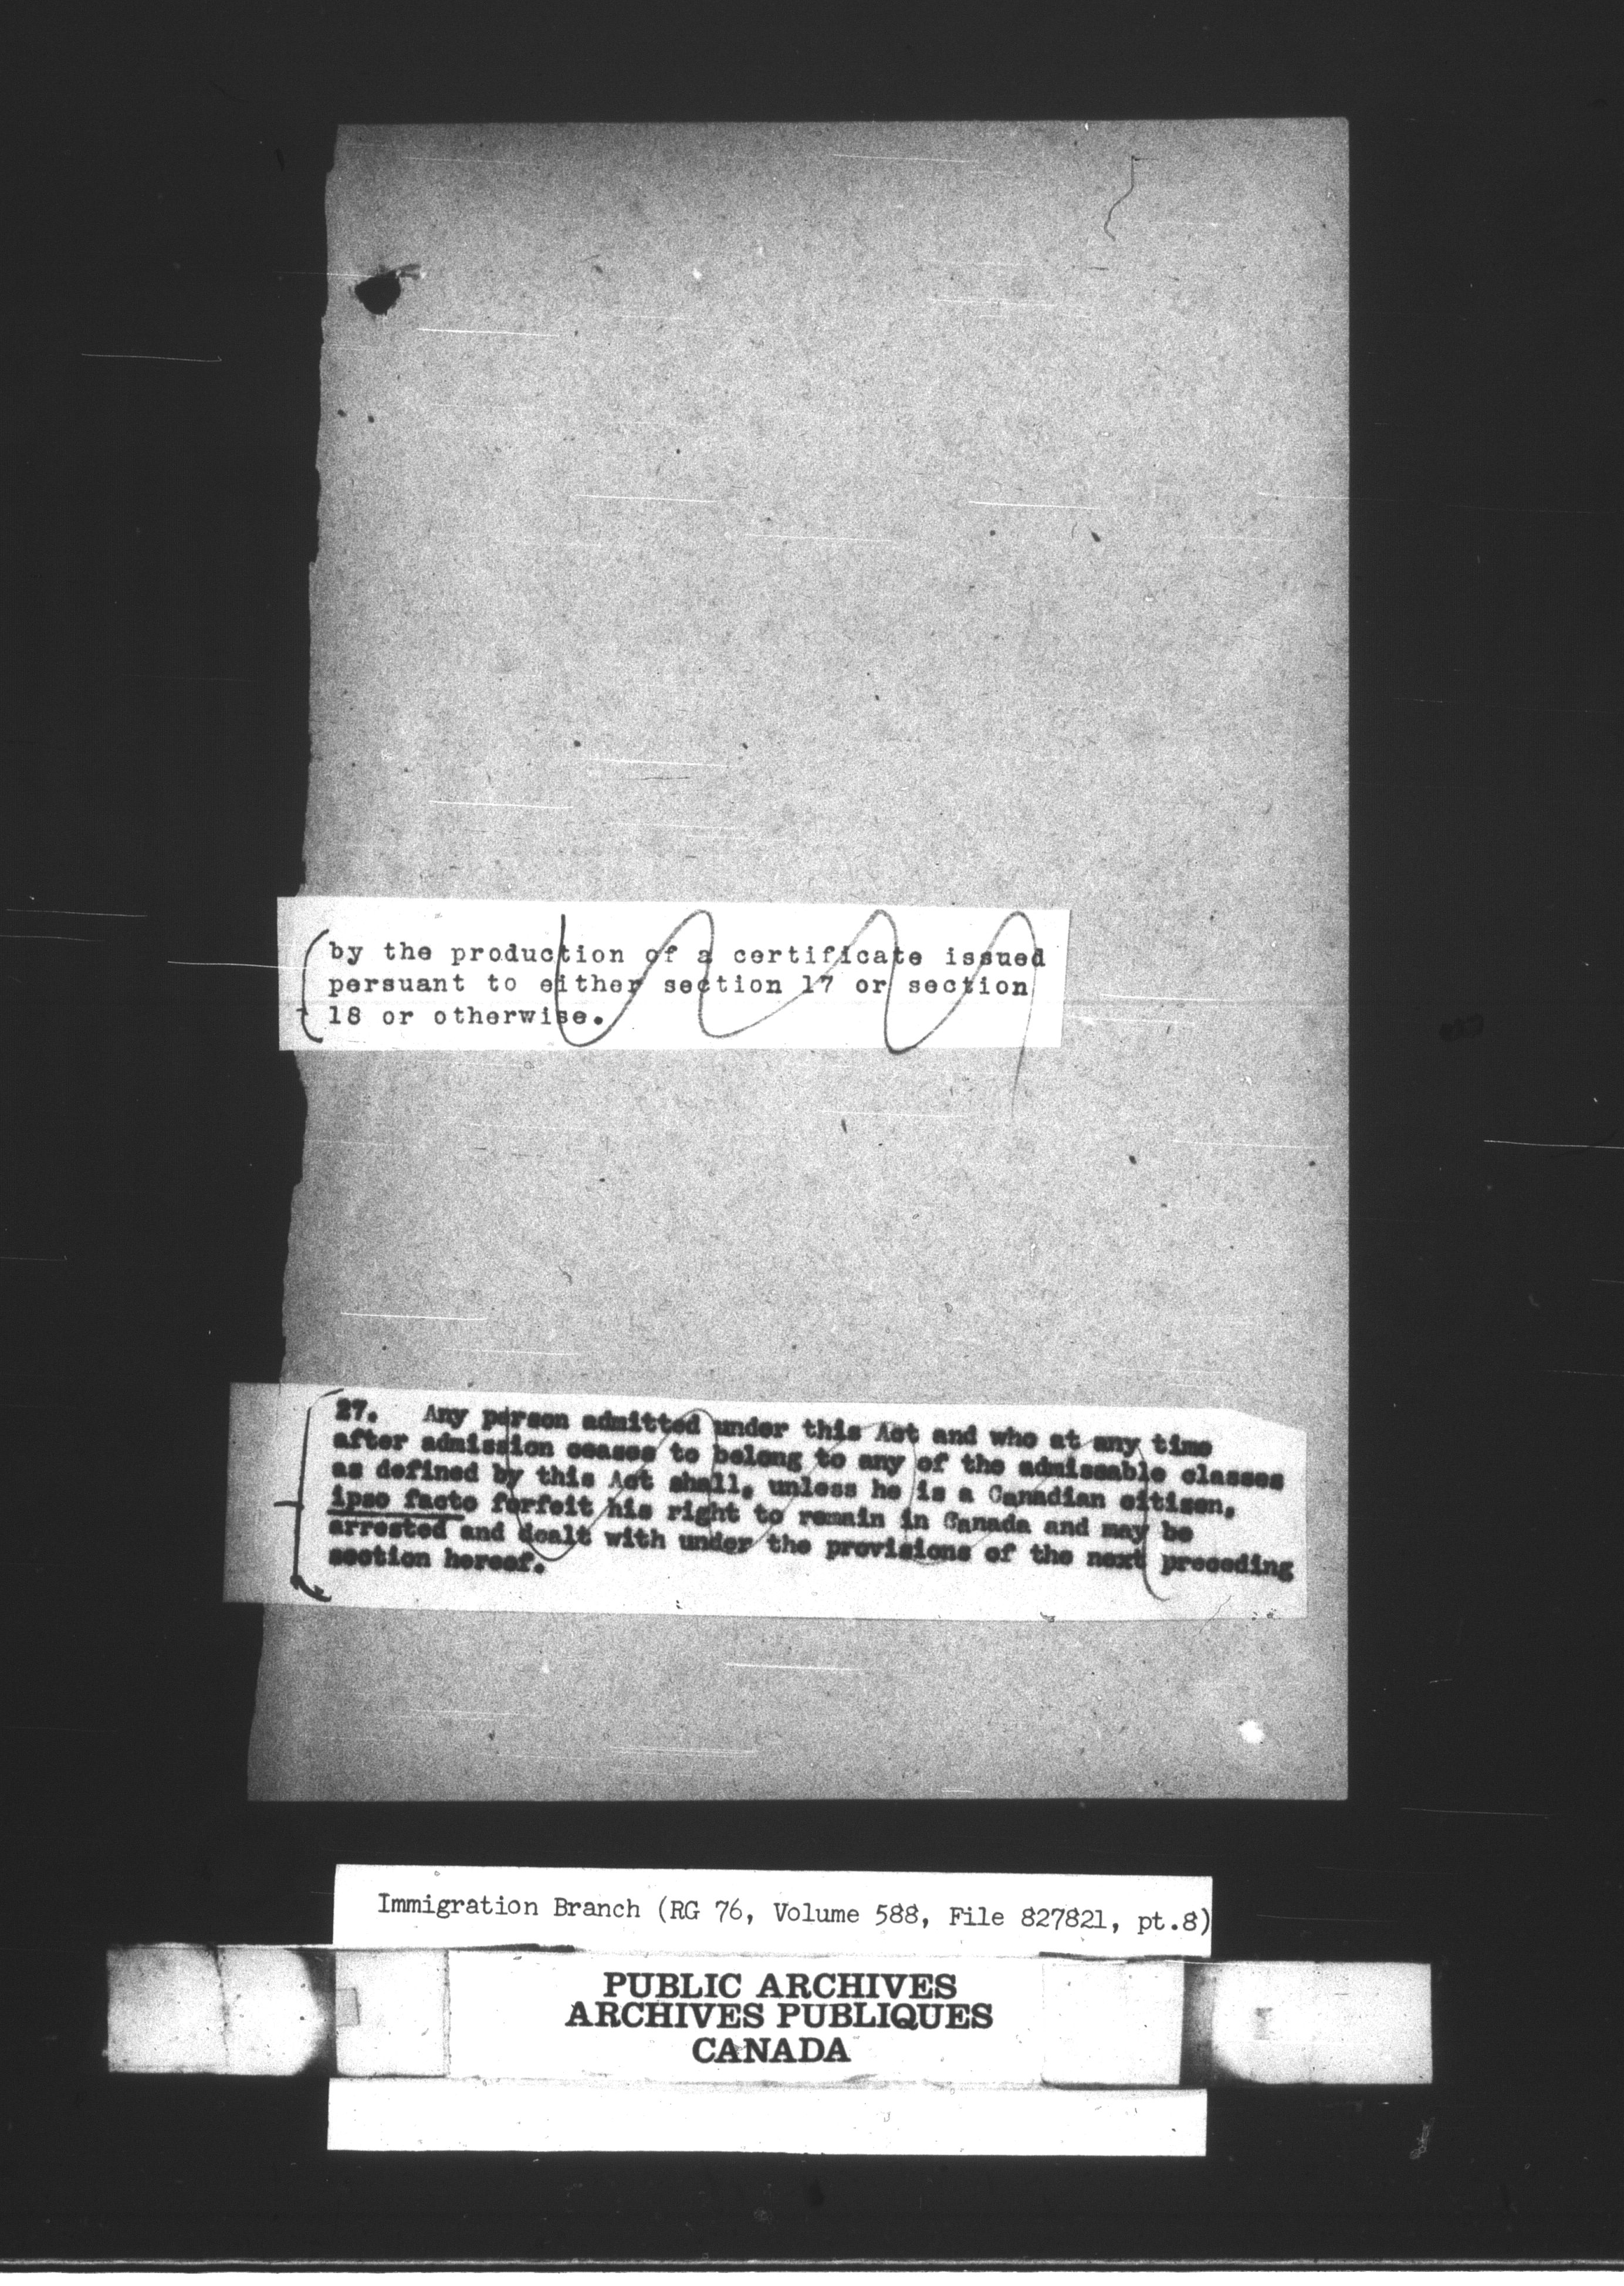 by the production of a certificate issued
persuant to either section 17 or section
18 or otherwise.
27. Any person admitted under this Act and who at any time
after admission ceases to belong to any of the admissable classes
as defined by this Act shall, unless he is a Canadian citizen,
ipso facto forfeit his right to remain in Canada and may be
arrested and dealt with under the provisions of the next preceding
section hereof.
Immigration Branch (RG 76, Volume 588, File 827821, pt.8)
PUBLIC ARCHIVES
ARCHIVES PUBLIQUES
CANADA